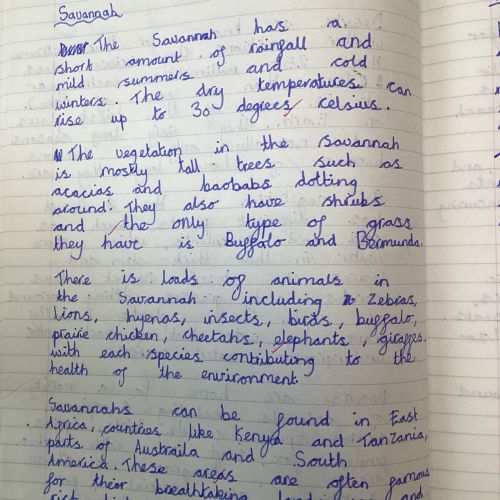 Savannah
The Savannah has a
short amount of rainfall and
mild summers and cold
winters. The dry temperatures can
rise up to 30 degrees celsius.
The vegetation in the savannah
is mostly tall trees such as
acacias and baobabs dotting
around. They also have shrubs
and the only type of grass
they have is Buffalo and Bermunda.
There is loads of animals in
the Savannah including Zebras,
lions, hyenas, insects, birds, buffalo,
prairie chicken, cheetahs, elephants, giraffes.
with each species contributing to the
health of the environment.
Savannahs can be found in East
Africa, countries like Kenya and Tanzania,
parts of Austraila and South
Amarica. These areas are often famous
for their breathtaking and